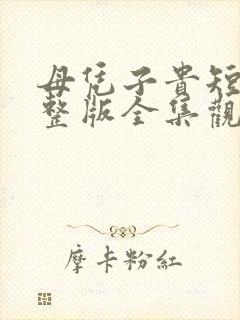 母凭子貴短
整版全集觀
摩卡粉紅